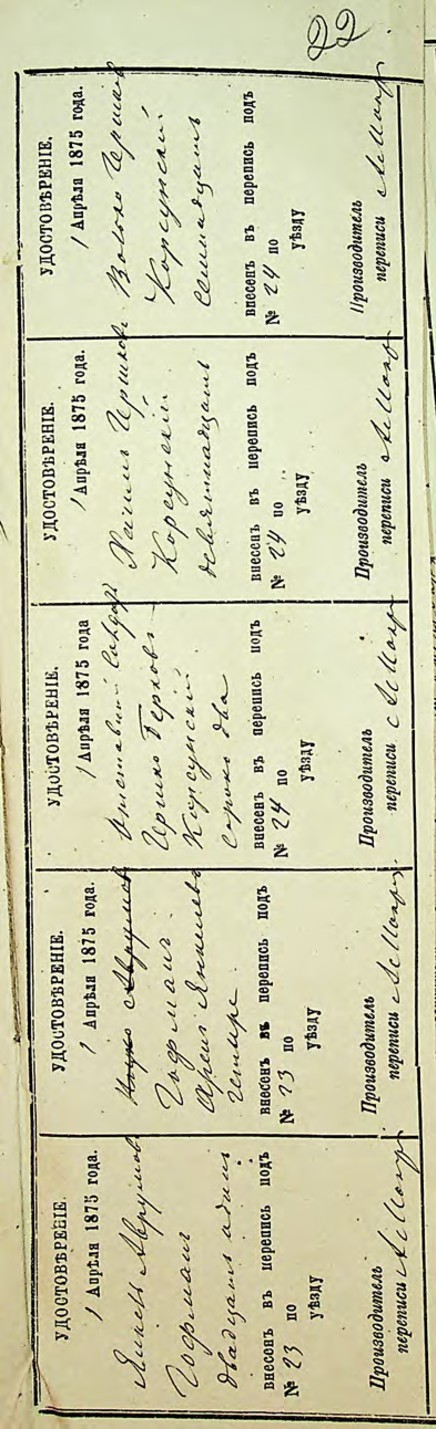 22
УДОСТОВѢРЕНІЕ.
1 Апрѣля 1875 года.
Янкель Аврумов
Гофманъ
двадцать одинъ
внесенъ въ перепись подъ
№ 23 по
уѣзду
Производитель
переписи
УДОСТОВѢРЕНІЕ.
1 Апрѣля 1875 года.
Аврумов
Гофманъ
Янкелевъ
четыре
внесенъ въ перепись подъ
№ 23 по
уѣзду
Производитель
переписи
УДОСТОВѢРЕНІЕ.
1 Апрѣля 1875 года
Гершко Берков
Корсунскій
сорокъ два
внесенъ въ перепись подъ
№ 24 по
уѣзду
Производитель
переписи
УДОСТОВѢРЕНІЕ.
1 Апрѣля 1875 года.
Гершков
Корсунскій
девятнадцать
внесенъ въ перепись подъ
№ 24 по
уѣзду
Производитель
переписи
УДОСТОВѢРЕНІЕ.
1 Апрѣля 1875 года.
Гершков
Корсунскій
семнадцать
внесенъ въ перепись подъ
№ 24 по
уѣзду
Производитель
переписи